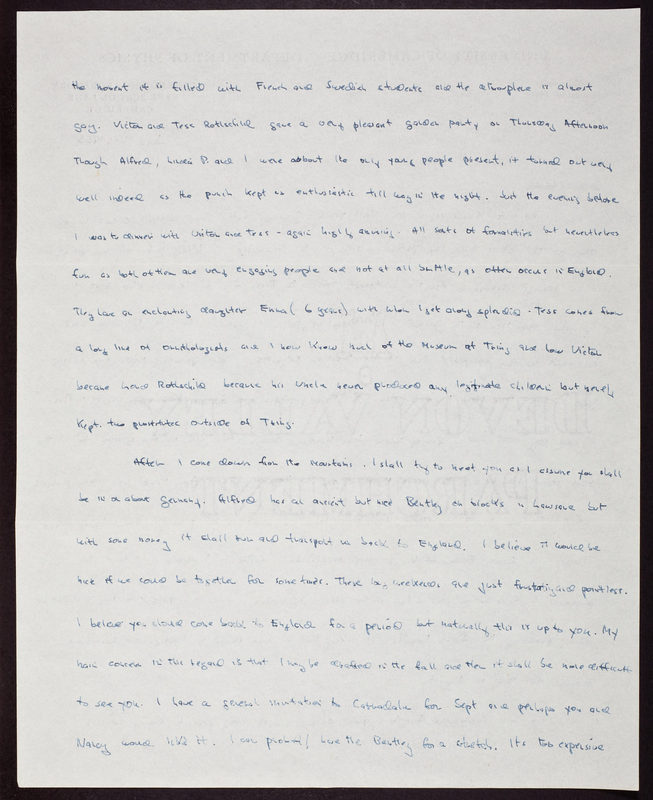 the moment it is filled with French and Swedish students and the atmosphere is almost
gay. Victor and Tess Rothschild gave a very pleasant garden party on Thursday Afternoon
Though Alfred, Linus P. and I were about the only young people present, it turned out very
well indeed as the punch kept us enthusiastic till way in the night. Just the evening before
I was to dinner with Victor and Tess - again highly amusing. All sorts of formalities but nevertheless
fun as both of them are very engaging people and not at all subtle, as often occurs in England.
They have an enchanting daughter Emma (6 years) with whom I get along splendid. Tess comes from
a long line of ornithologists and I now know much of the Museum at Tring and how Victor
became Lord Rothschild because his Uncle never produced any legitimate children but merely
kept two prostitutes outside of Tring.
After I come down from the mountains. I shall try to meet you as I assume you shall
be in or about Germany. Alfred has an ancient but nice Bentley on blocks in Lausanne but
with some money it shall run and transport us back to England. I believe it would be
nice if we could be together for some time. These long weekends are just frustrating and pointless.
I believe you should come back to England for a period but naturally this is up to you. My
main concern in this regard is that I may be drafted in the fall and then it shall be more difficult
to see you. I have a general invitation to Carradale for Sept and perhaps you and
Nancy would like it. I can probably have the Bentley for a stretch. It's too expensive